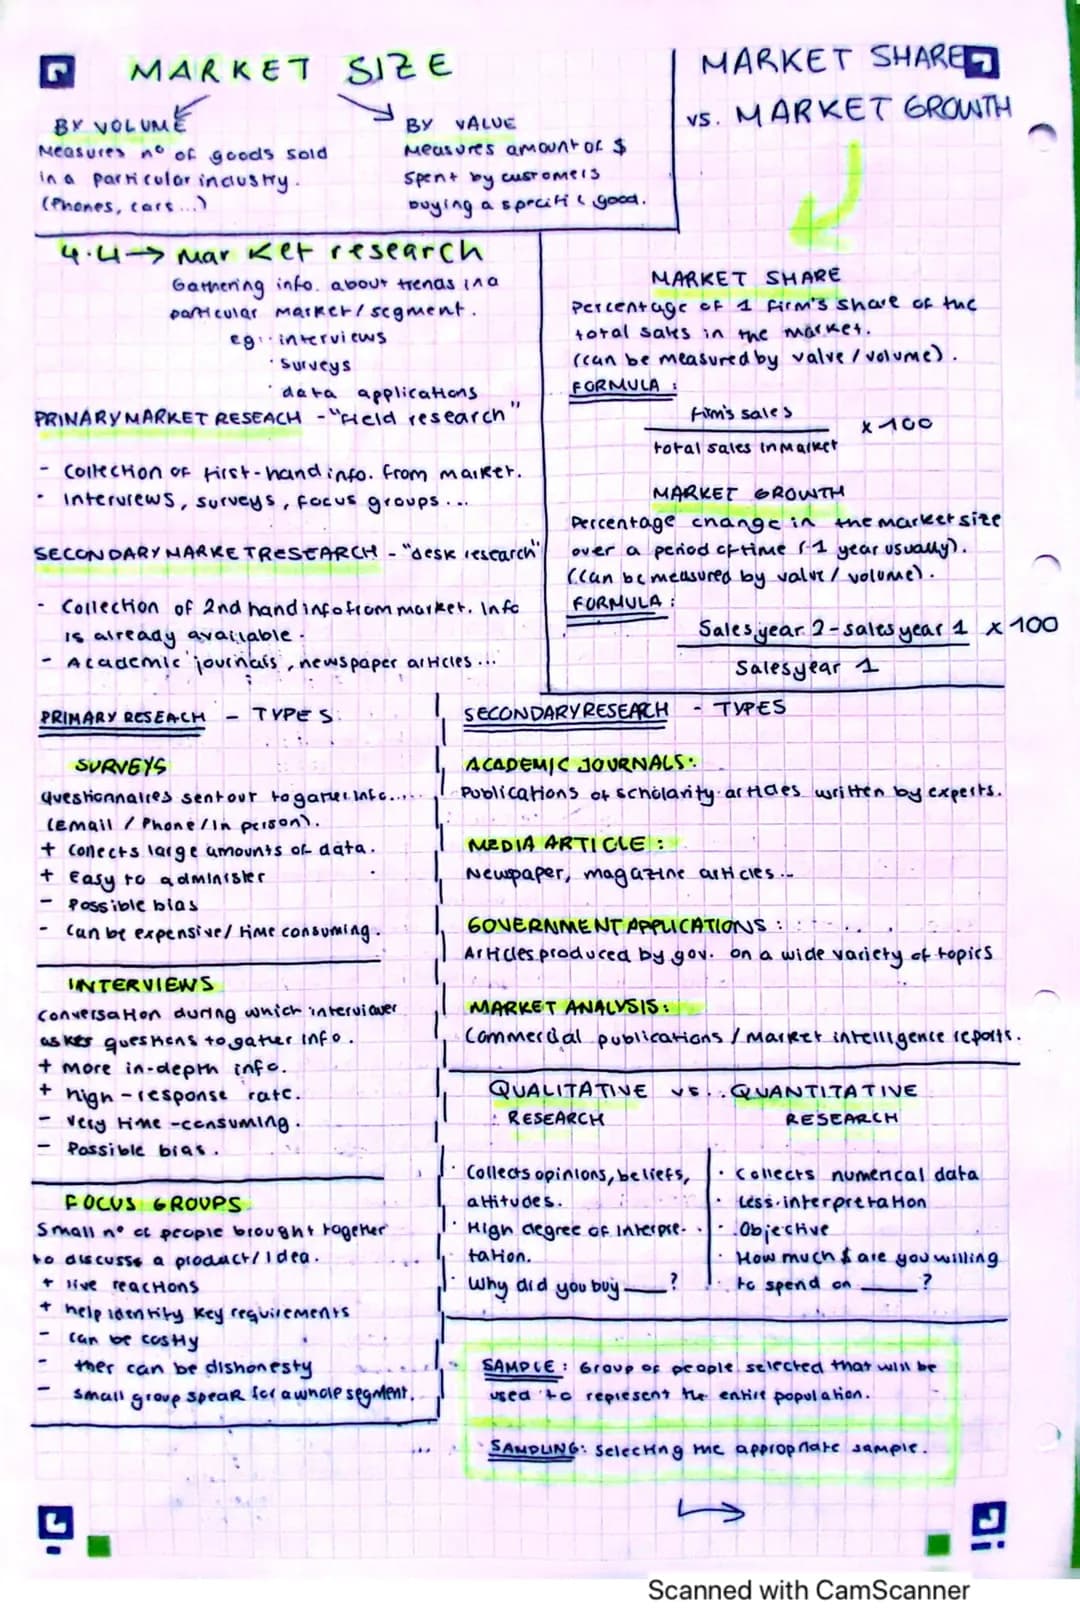 MARKET SIZE
BY VOLUME
Measures nº of goods sold
in a particular industry.
(Phones, cars ...)
BY VALUE
Measures amount of $
spent by customers
buying a specific good.
MARKET SHARE
vs. MARKET GROWTH
4.4 → Market research
Gathering info. about trends in a
particular market/segment.
eg: · interviews
· surveys
· data applications
PRINARY MARKET RESEACH - "Field research"
- Collection of first-hand info. from market.
· Interviews, surveys, focus groups ...
SECONDARY MARKET RESEARCH - "desk research"
· Collection of 2nd hand info from market. Info
is already available.
- Academic journals, newspaper articles ...
MARKET SHARE
Percentage of 1 firm's share of the
total sales in the market.
(can be measured by value / volume).
FORMULA :
firm's sales
x 100
total sales in market
MARKET GROWTH
Percentage change in the market size
over a period of time (-1 year usually).
(can be measured by value / volume).
FORMULA :
Sales year 2 - sales year 1 x 100
Sales year 1
PRIMARY RESEACH - TYPES
SURVEYS
questionnaires sent out to gather info....
(Email / Phone / In person).
+ Collects large amounts of data.
+ Easy to administer
- Possible bias
- Can be expensive / time consuming.
INTERVIEWS
conversation during which interviewer
askes questions to gather info.
+ more in-depth info.
+ high-response rate.
- very time-consuming.
- Possible bias.
FOCUS GROUPS
Small nº of people brought together
to discusss a product / idea.
+ live reactions
+ help identity key requirements
- can be costly
- ther can be dishonesty
- small group spear for a whole segment.
SECONDARY RESEARCH - TYPES
ACADEMIC JOURNALS:
Publications of scholarity articles written by experts.
MEDIA ARTICLE :
Newpaper, magazine articles...
GOVERNMENT APPLICATIONS :
Articles produced by gov. on a wide variety of topics
MARKET ANALYSIS:
Commercial publications / Market intelligence reports.
QUALITATIVE vs. QUANTITATIVE
RESEARCH RESEARCH
· Collects opinions, beliefs,
attitudes.
· High degree of interpre-
tation.
· Why did you buy ___?
· Collects numerical data
· Less interpretation
· Objective
· How much $ are you willing
to spend on ___?
SAMPLE : Group of people selected that will be
used to represent the entire population.
SAMPLING: Selecting the appropriate sample.
Scanned with CamScanner